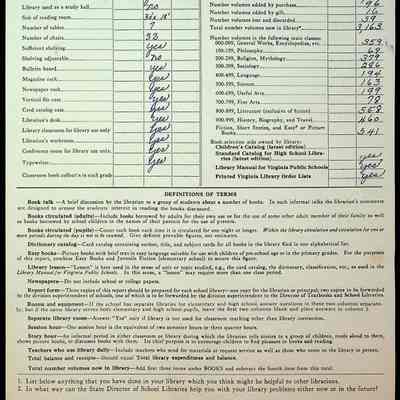 Library used as a study hall no
Size of reading room 32 x 18'
Number of tables 7
Number of chairs 32
Sufficient shelving yes
Shelving adjustable no
Bulletin board yes
Magazine rack yes
Newspaper rack yes
Vertical file case yes
Card catalog case yes
Librarian's desk yes
Library classroom for library use only
Librarian's workroom yes
Conference room for library use only
Typewriter yes
Classroom book collect'n in each grade
Number volumes added by purchase 196
Number volumes added by gift 16
Number volumes lost and discarded 39
Total number volumes now in library* 3,163
Number volumes in the following main classes:
000-099, General Works, Encyclopedias, etc. 359
100-199, Philosophy 68
200-299, Religion, Mythology
300-399, Sociology 286
400-499, Language 194
500-599, Science 163
600-699, Useful Arts 199
700-799, Fine Arts 78
800-899, Literature (exclusive of fiction) 558
900-999, History, Biography, and Travel 460
Fiction, Short Stories, and Easy* or Picture
Books 541
Book selection aids owned by library:
Children's Catalog (latest edition)
Standard Catalog for High School Libra-
ries (latest edition) yes
Library Manual for Virginia Public Schools yes
Printed Virginia Library Order Lists yes
DEFINITIONS OF TERMS
Book talk — A brief discussion by the librarian to a group of students about a number of books. In such informal talks the librarian's comments
are designed to arouse the students' interest in reading the books discussed.
Books circulated (adults)— Include books borrowed by adults for their own use or for the use of some other adult member of their family as well
as books borrowed by school children in the names of their parents for the use of parents.
Books circulated (pupils)— Count each book each time it is circulated for one night or longer. Within the library circulation and circulation for one or
more periods during the day is not to be counted. Give definite provable figures, not estimates.
Dictionary catalog— Card catalog containing author, title, and subject cards for all books in the library filed in one alphabetical list.
Easy books— Picture books with print in easy large type language suitable for use with children of pre-school age or in the primary grades. For the purposes
of this report, combine Easy Books and Juvenile Fiction (elementary school) to assure this figure.
Library lesson—"Lesson" is here used in the sense of unit or topic studied, e.g., the card catalog, the dictionary, classification, etc., as used in the
Library Manual for Virginia Public Schools. In this sense, a "lesson" may require more than one class period.
Newspapers— Do not include school or college papers.
Report form— Three copies of this report should be prepared for each school library—one copy for the librarian or principal; two copies to be forwarded
to the division superintendent of schools, one of which is to be forwarded by the division superintendent to the Director of Textbooks and School Libraries.
Rooms and equipment— If the school has separate libraries for elementary and high school answer questions in these two columns separate-
ly; but if the same library serves both elementary and high school pupils, leave the first two columns blank and place answers in column 3.
Separate library room— Answer "Yes" only if library is not used for classroom teaching other than library instruction.
Session hour— One session hour is the equivalent of two semester hours or three quarter hours.
Story hour— An informal period in either classroom or library during which the librarian tells stories to a group of children, reads aloud to them,
shows picture books, or discusses books with them. Its chief purpose is to encourage children to find pleasure in books and reading.
Teachers who use library daily— Include teachers who send for materials at request service as well as those who come to the library in person.
Total balance and receipts— Should equal Total library expenditures and balance.
Total number volumes now in library— Add first three items under BOOKS and subtract the fourth item from this total.
1. List below anything that you have done in your library which you think might be helpful to other librarians.
2. In what way can the State Director of School Libraries help you with your library problems either now or in the future?